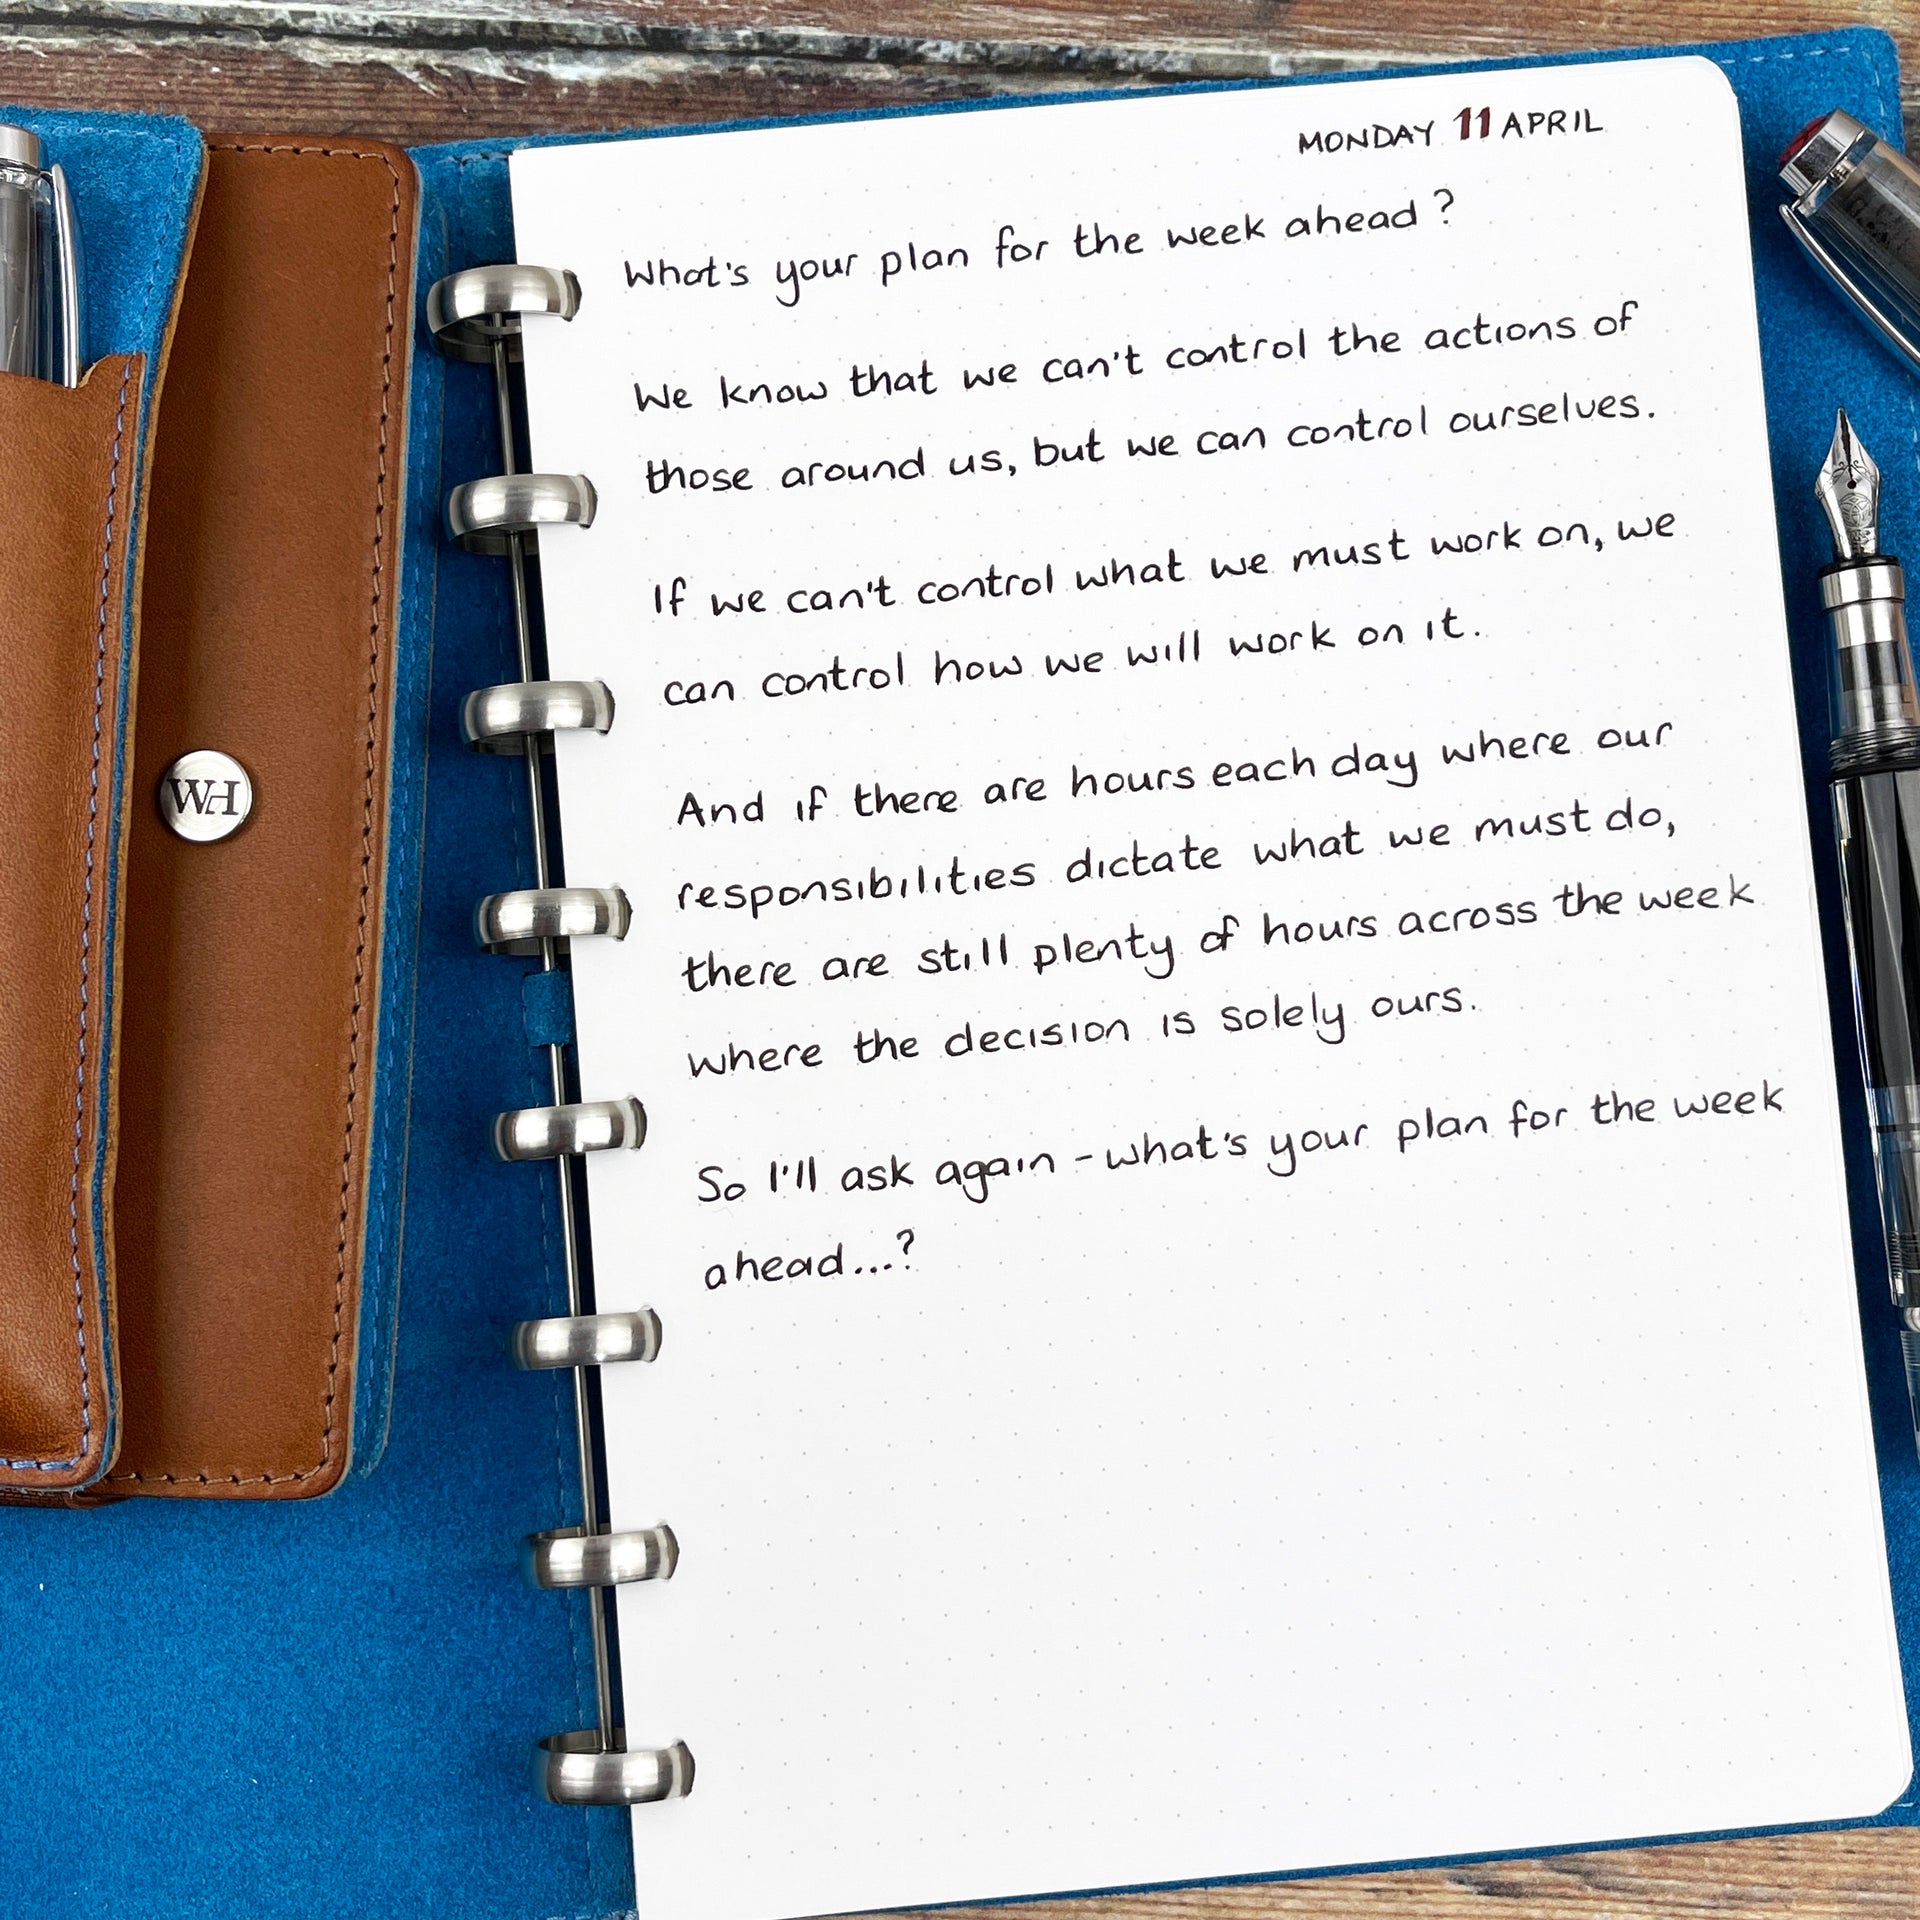 MONDAY 11 APRIL
What's your plan for the week ahead?
We know that we can't control the actions of
those around us, but we can control ourselves.
If we can't control what we must work on, we
can control how we will work on it.
And if there are hours each day where our
responsibilities dictate what we must do,
there are still plenty of hours across the week
where the decision is solely ours.
So I'll ask again - what's your plan for the week
ahead...?
WH